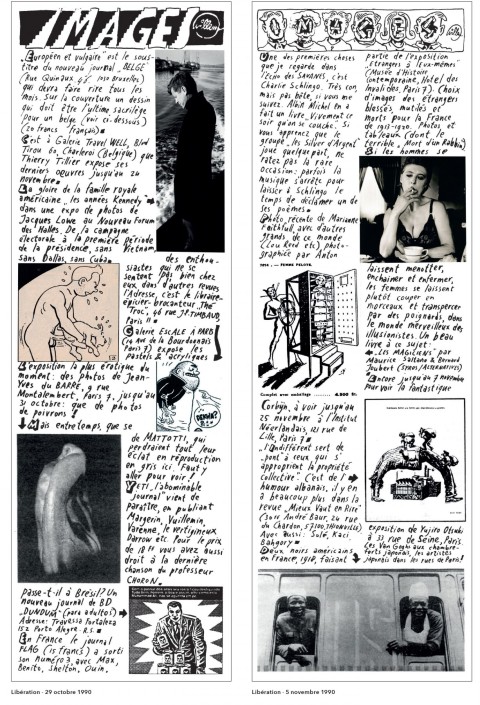 IMAGES
Willem
"Européen et vulgaire" est le sous-
titre du nouveau journal "BELGE"
(Rue Quinaux 1030 Bruxelles)
qui devra faire rire tous les
mois. Sur la couverture un dessin
qui doit être l'ultime sacrilège
pour un belge (voir ci-dessous)
(20 francs français)
C'est à Galerie Travel WELL, Blvd
Tirou 60, Charleroi (Belgique) que
Thierry Tillier expose ses
derniers oeuvres jusqu'au 20
novembre
La gloire de la famille royale
américaine "les années Kennedy"
dans une expo de photos de
Jacques Lowe au Nouveau Forum
des Halles. De la campagne
électorale à la première période
de la présidence, sans Vietnam,
sans Dallas, sans Cuba.
des enthou-
siastes qui ne se
sentent pas bien chez
eux dans d'autres revues
l'Adresse, c'est le libraire-
épicier-brocanteur "The
Troc", 46 rue J.P. TIMBAUD,
Paris 11
Galerie ESCALE À PARIS
(14 Ave de la Bourdonnais
Paris 7) expose les
Pastels & acryliques
L'exposition la plus érotique du
moment: des photos de Jean-
Yves du BARRE, 9 rue
Montalembert, Paris 7, jusqu'au
31 octobre: que de photos
de poivrons!
Mais entretemps, que se
de MATTOTTI, qui
perdraient tout leur
éclat en réproduction
en gris ici. Faut y
aller pour voir!
YETI, "l'abominable
journal" vient de
paraître, en publiant
Margerin, Vuillemin,
Varenne, le vertigineux
Darrow etc. Pour le prix
de 18 FF vous avez aussi
droit à la dernière
chanson du professeur
CHORON
passe-t-il à Brésil? Un
nouveau journal de BD
"DUNDUM" (para adultos)
Adresse: Travessa Fortaleza
152 Porto Alegre. R.S.
En France le journal
FLAG (15 francs) a sorti
son numéro 3, avec Max,
Benito, Shelton, Ouin,
Libération - 29 octobre 1990
IMAGES
Une des premières choses
que je regarde dans
l'Echo des SAVANES, c'est
Charlie Schlingo. Très con,
mais pas bête, si vous me
suivez. Albin Michel en a
fait un livre. Vivement ce
soir qu'on se couche. Si
vous apprenez que le
groupe "les Silver d'Argent"
joue quelque part, ne
ratez pas la rare
occasion: parfois la
musique s'arrête pour
laisser à Schlingo le
temps de déclamer un de
ses poèmes
Photo récente de Marianne
Faithfull, avec d'autres
grands de ce monde
(Lou Reed etc) photo-
graphiée par Anton
1914 . — FEMME PELOTE.
Complet avec emballage
Corbijn, à voir jusqu'au
25 novembre à l'Institut
Néerlandais, 121 rue de
Lille, Paris 7
"l'indifférent sert de
pont à ceux qui s'
approprient la propriété
collective". C'est de l'
humour albanais, il y en
a beaucoup plus dans la
revue "Mieux Vaut en Rire"
Avec aussi: Solé, Kaci,
Bahgory
Deux noirs américains
en France, 1918, faisant
partie de l'exposition
"étrangers à eux-mêmes"
(Musée d'Histoire
contemporaine, Hôtel des
Invalides, Paris 7). Choix
d'images des étrangers
blessés, mutilés et
morts pour la France
de 1913-1920. Photos et
tableaux (dont le
terrible "Mort d'un Rabbin")
Si les hommes se
laissent menotter,
enchainer et enfermer,
les femmes se laissent
plutôt couper en
morceaux et transpercer
par des poignards, dans
le monde merveilleux des
illusionistes. Un beau
livre à ce sujet:
"LES MAGICIENS" par
Maurice Saltano & Bernard
Joubert
Encore jusqu'au 7 novembre
Pour voir la fantastique
exposition de Yujiro Otsuki
à 33, rue de Seine, Paris.
Les Van Goghs aux chambre-
forts japonais, les artistes
japonais dans les rues de Paris!
Libération - 5 novembre 1990